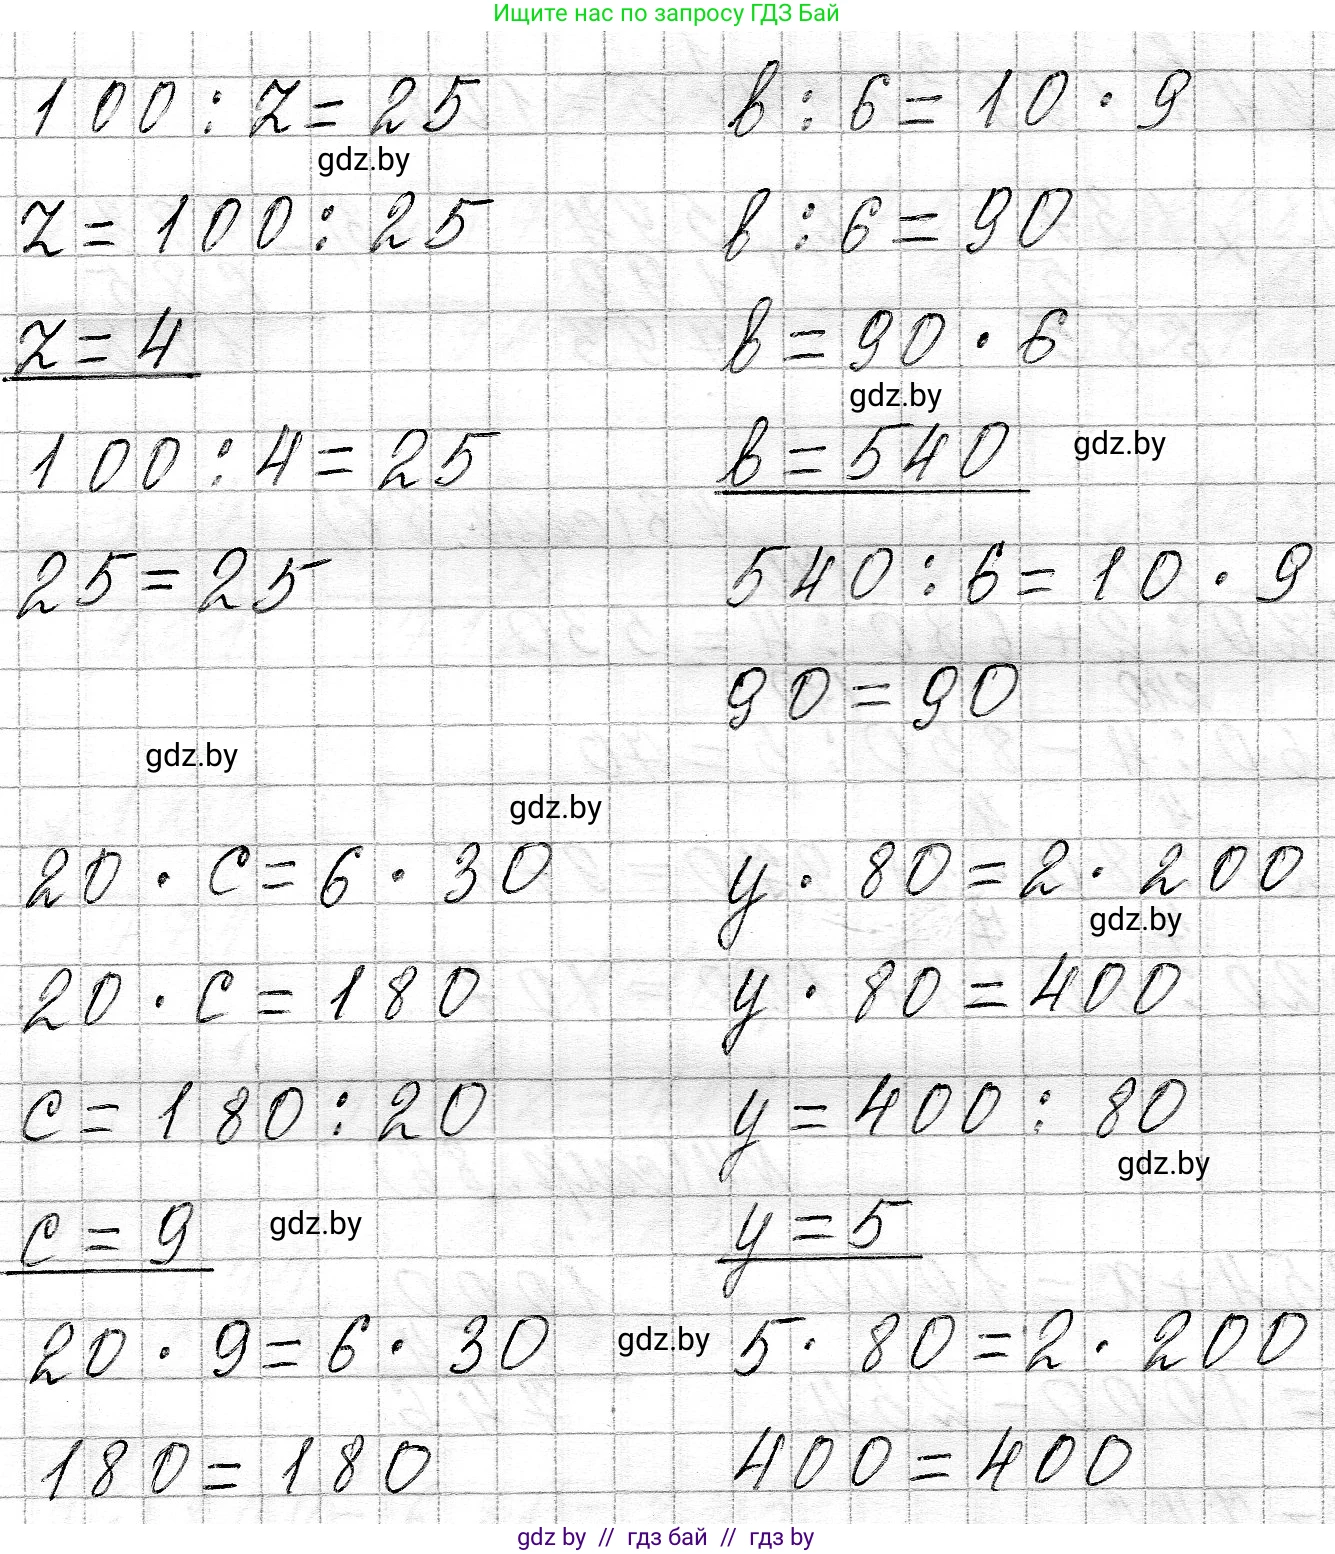 Ищите нас по запросу ГДЗ Бай
100 : z = 25
gdz.by
z = 100 : 25
z = 4
100 : 4 = 25
25 = 25
в : 6 = 10 · 9
в : 6 = 90
в = 90 · 6
gdz.by
в = 540
gdz.by
540 : 6 = 10 · 9
90 = 90
gdz.by
gdz.by
20 · c = 6 · 30
20 · c = 180
c = 180 : 20
c = 9
gdz.by
20 · 9 = 6 · 30
180 = 180
y · 80 = 2 · 200
gdz.by
y · 80 = 400
y = 400 : 80
gdz.by
y = 5
gdz.by
5 · 80 = 2 · 200
400 = 400
gdz by // гдз бай // гдз by